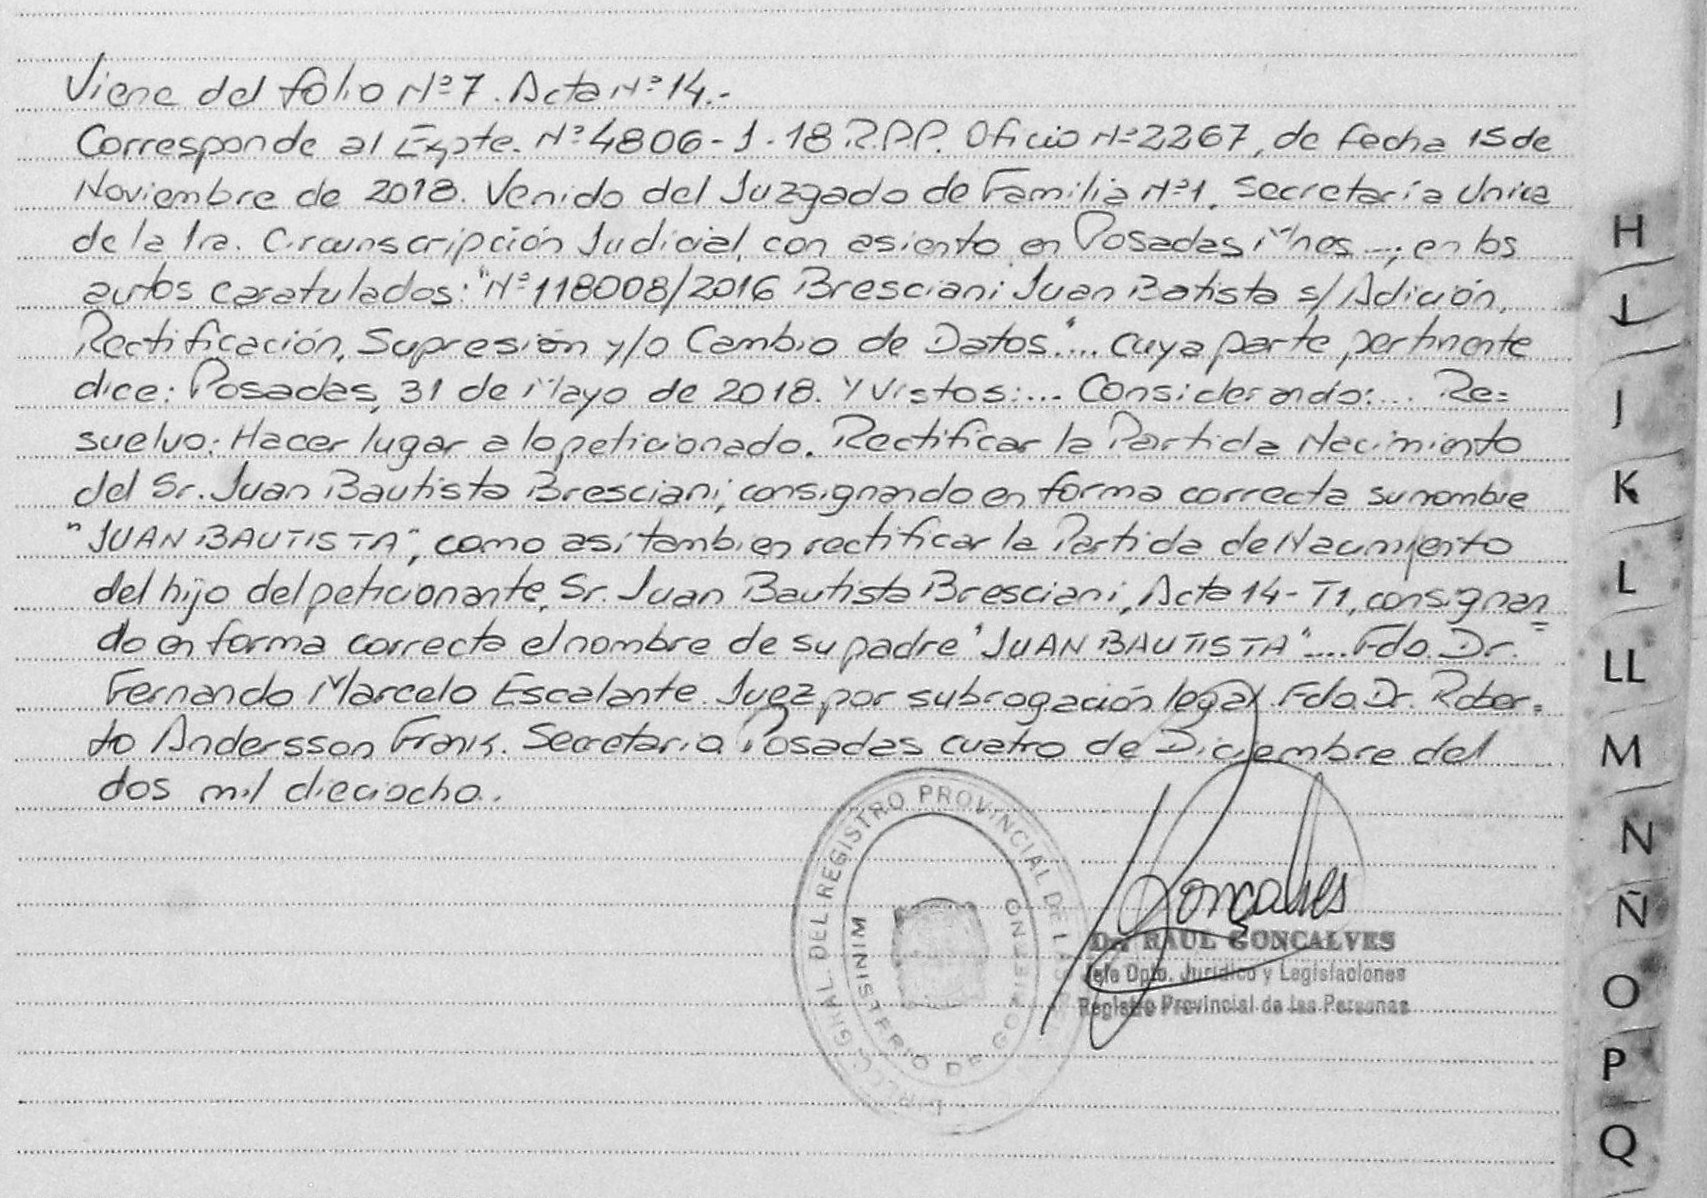 Viene del folio Nº 7. Acta Nº 14.-
Corresponde al Expte. Nº 4806-J-18 R.P.P. Oficio Nº 2267, de fecha 15 de
Noviembre de 2018. Venido del Juzgado de Familia Nº 1, Secretaría Unica
de la 1ra. Circunscripción Judicial, con asiento en Posadas Mnes -; en los
autos caratulados: "Nº 118008/2016 Bresciani Juan Batista s/ Adición,
Rectificación, Supresión y/o Cambio de Datos".... cuya parte pertinente
dice: Posadas, 31 de Mayo de 2018. Y Vistos:... Considerando:... Re=
suelvo: Hacer lugar a lo peticionado. Rectificar la Partida Nacimiento
del Sr. Juan Bautista Bresciani; consignando en forma correcta su nombre
"JUAN BAUTISTA", como así tambien rectificar la Partida de Nacimiento
del hijo del peticionante, Sr. Juan Bautista Bresciani, Acta 14-T1, consignan=
do en forma correcta el nombre de su padre "JUAN BAUTISTA".... Fdo. Dr.
Fernando Marcelo Escalante. Juez por subrogación legal. Fdo. Dr. Rober=
to Andersson Frank. Secretario Posadas cuatro de Diciembre del
dos mil dieciocho..
DEL REGISTRO PROVINCIAL DE LAS
MINISTERIO DE GOBIERNO
Goncalves
Dr. RAUL GONCALVES
Jefe Dpto. Jurídico y Legislaciones
Registro Provincial de las Personas
H
I
J
K
L
LL
M
N
Ñ
O
P
Q